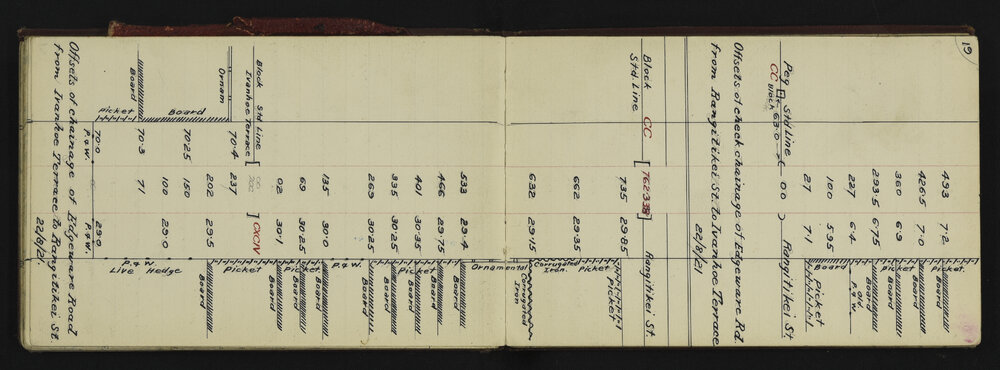 19
493 7.2 Picket
Board
426.5 7.0
Picket
360 6.9 Board
293.5 6.75 Board
Old P.&W.
227 6.4
Picket
100 5.95
Board
27 7.1
Peg Std Line 00 Rangitikei St.
CC Block 63.0
Offsets of check chainage of Edgeware Rd.
from Rangitikei St. to Ivanhoe Terrace
22/8/21
Block CC [762.338] Rangitikei St.
Std. Line
735 29.85 Picket
Picket
662 29.35
Corrugated Iron.
632 29.15
Corrugated Iron
Ornamental
533 29.4 Board
466 29.75 Board
Picket
401 30.35 Board
335 30.25 Board
269 30.25 Board
P.&W.
135 30.0 Board
69 30.25 Board
Picket
02 30.1 Board
Block Std Line
Ivanhoe Terrace ] 00 ] CXCIV
Ornam
70.4 237
Picket
202 29.5 Board
Board
70.25 150
100 29.0
Board 70.3 71
Picket
P.&W.
Live Hedge
70.0 29.0
P.&W. P.&W.
Offsets of chainage of Edgeware Road
from Ivanhoe Terrace to Rangitikei St.
22/8/21.